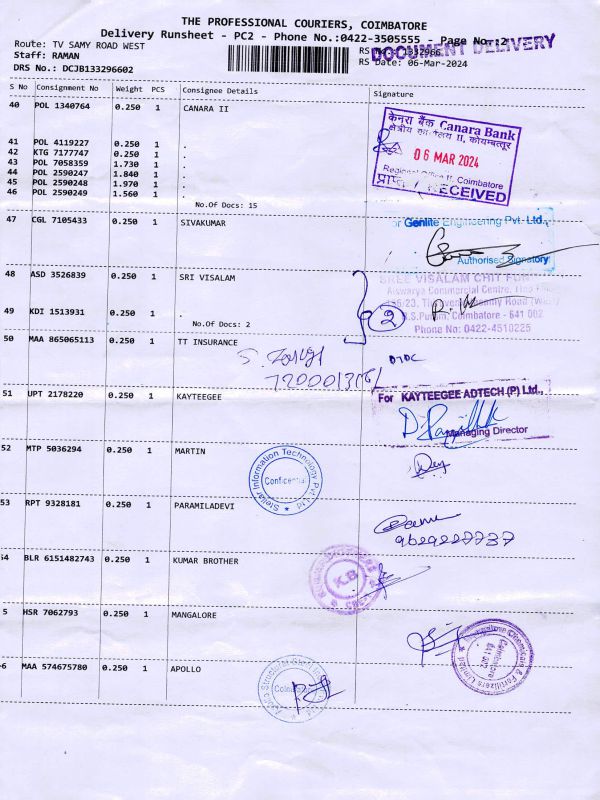 THE PROFESSIONAL COURIERS, COIMBATORE
Delivery Runsheet - PC2 - Phone No.:0422-3505555 - Page No.:2
DOCUMENT DELIVERY
Route: TV SAMY ROAD WEST
RS No.: 1332966
Staff: RAMAN
RS Date: 06-Mar-2024
DRS No.: DCJB133296602
S No Consignment No Weight PCS Consignee Details Signature
40 POL 1340764 0.250 1 CANARA II
केनरा बैंक Canara Bank
क्षेत्रीय का II, कोयम्बत्तूर
06 MAR 2024
Regional Office II, Coimbatore
प्राप्त / RECEIVED
41 POL 4119227 0.250 1 .
42 KTG 7177747 0.250 1 .
43 POL 7058359 1.730 1 .
44 POL 2590247 1.840 1 .
45 POL 2590248 1.970 1 .
46 POL 2590249 1.560 1 .
No.Of Docs: 15
47 CGL 7105433 0.250 1 SIVAKUMAR
For Genlite Engineering Pvt- Ltd.,
Authorised Signatory
48 ASD 3526839 0.250 1 SRI VISALAM
SREE VISALAM CHIT
Aiswarya Commercial Centre,
Road (West)
R.S.Puram, Coimbatore - 641 002
Phone No: 0422-4510225
2
49 KDI 1513931 0.250 1 .
No.Of Docs: 2
50 MAA 865065113 1 TT INSURANCE
DTDC
51 UPT 2178220 0.250 1 KAYTEEGEE
For KAYTEEGEE ADTECH (P) Ltd.,
Managing Director
52 MTP 5036294 0.250 1 MARTIN
Stellar Information Technology Pvt Ltd
53 RPT 9328181 0.250 1 PARAMILADEVI
54 BLR 6151482743 0.250 1 KUMAR BROTHER
K.B
5 HSR 7062793 0.250 1 MANGALORE
Mangalore Chemicals & Fertilizers Limited
Coimbatore
6 MAA 574675780 0.250 1 APOLLO